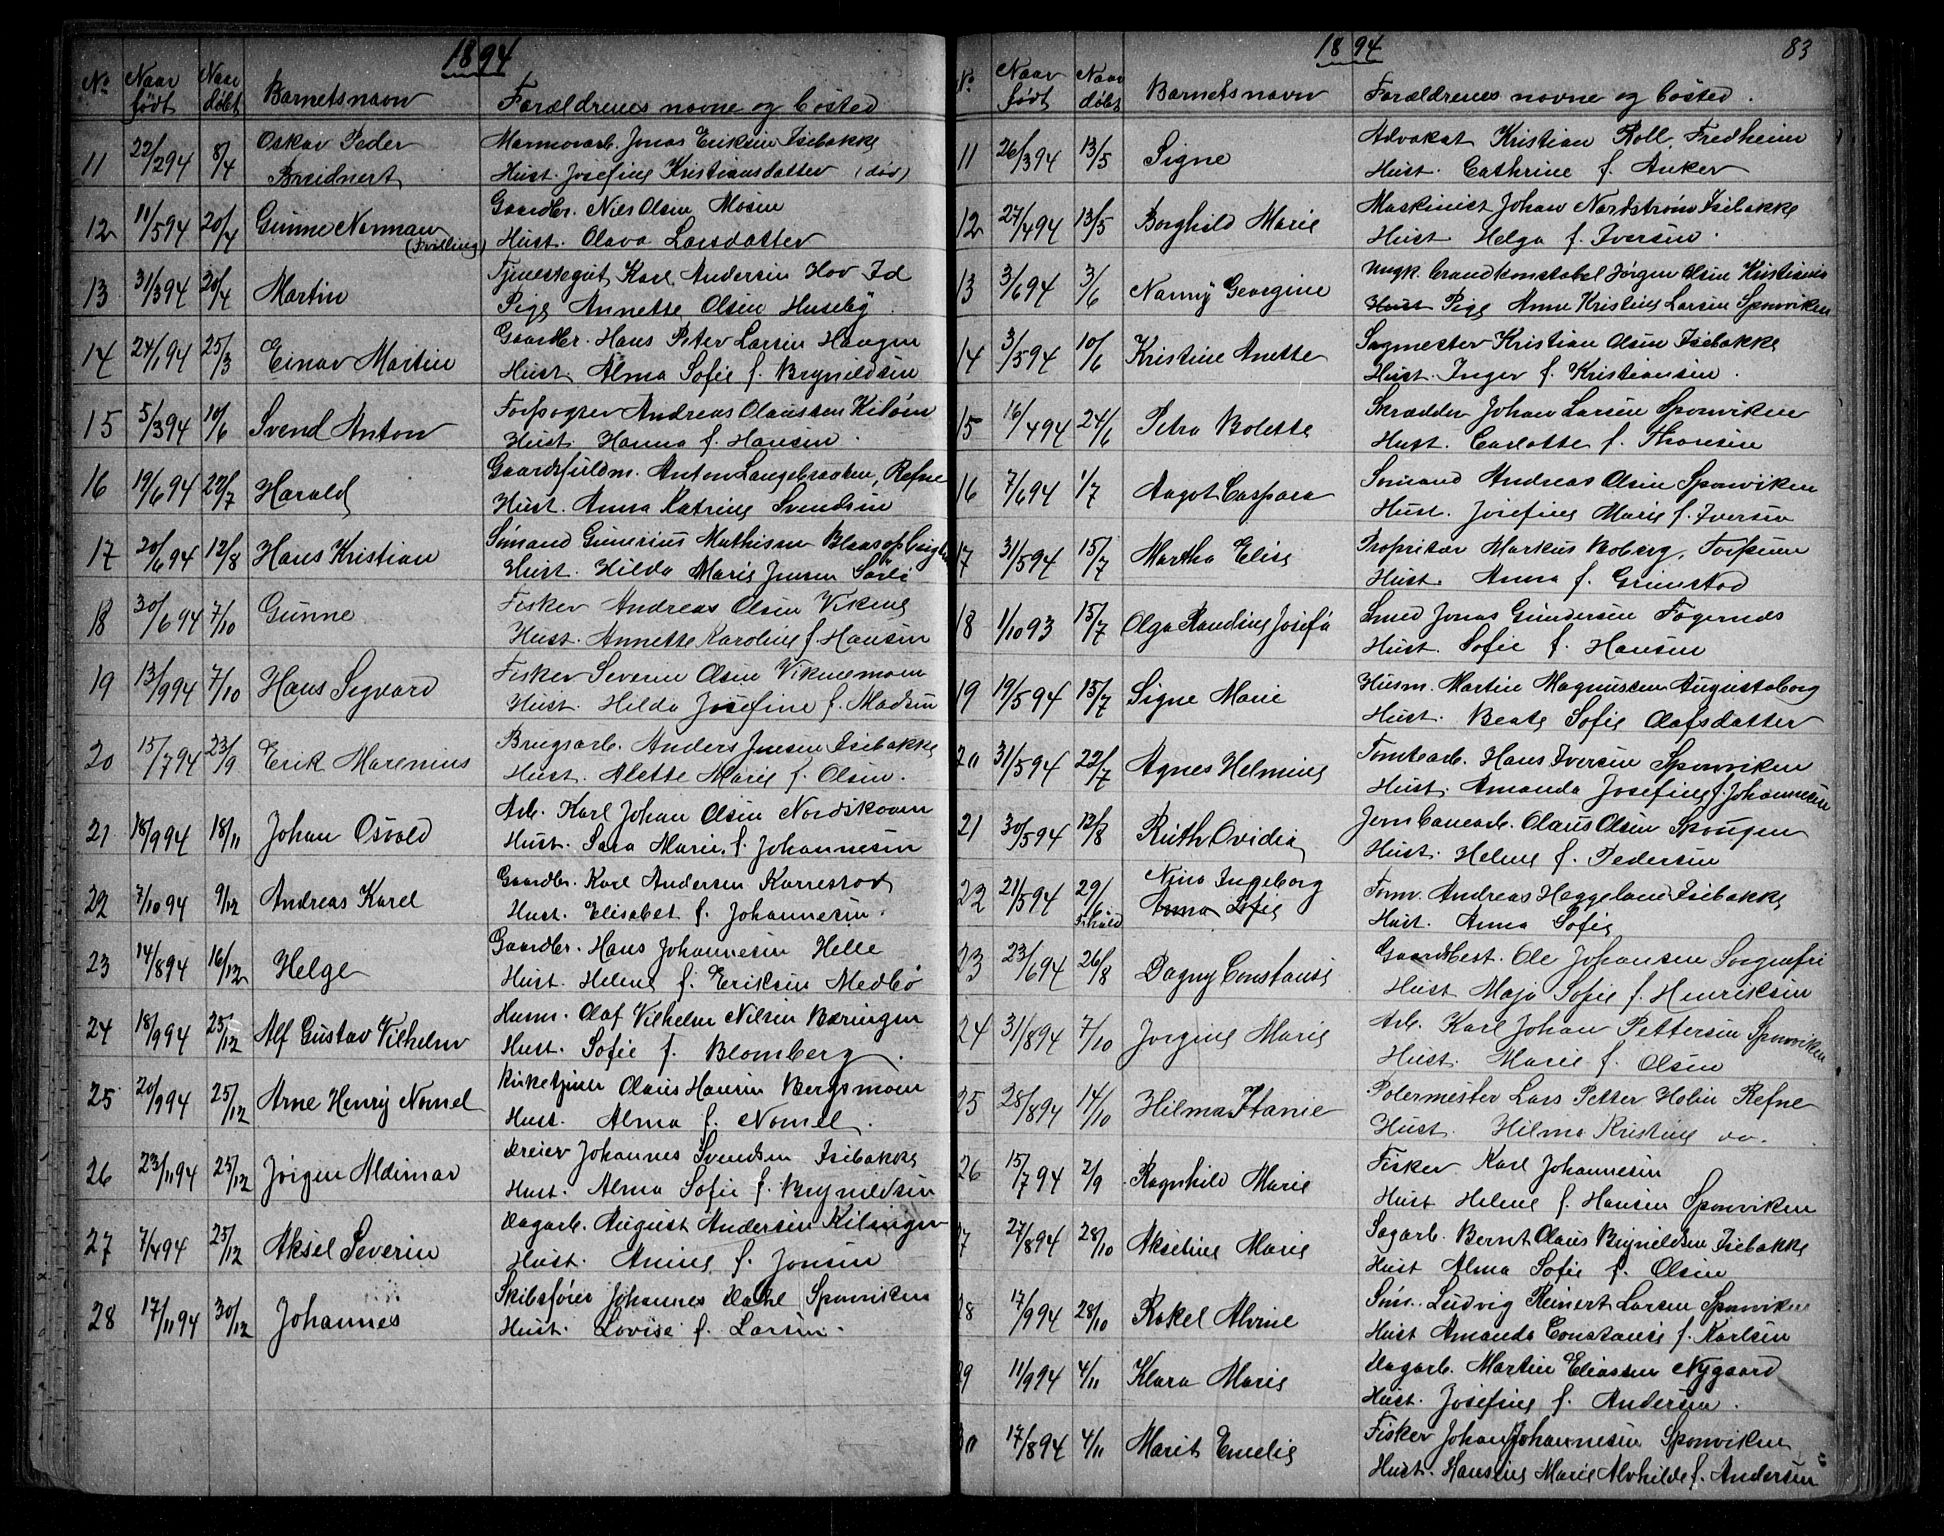 1894
No Naar født Naar døbt Barnetsnavn Forældrenes navne og bosted
11 22/2 94 8/4 Oskar Peder Marmorarb. Jonas Eriksen Isebakke
Hust. Josefine Kristiansdatter (død)
12 11/5 94 20/4 Gunne Norman Gaardbr. Niels Olsen Mosen
(Tvilling) Hust. Olava Larsdatter
13 31/3 94 20/4 Martin Tjenestegut Karl Andersen Hov Id
Pige Annette Olsen Huseby
14 24/1 94 25/3 Einar Martin Gaardbr. Hans Peter Larsen Haugen
Hust. Alma Sofie f. Brynildsen
15 5/3 94 10/6 Svend Anton Forpagter Andreas Claussen
Hust. Hanna f. Hansen
16 19/6 94 22/7 Harald Gaardsfuldm. Anton Langebraaten, Refne
Hust. Anna Katrine Svendsen
17 20/6 94 12/8 Hans Kristian Sømand Gunerius Mathisen
Hust. Hilda Marie Jensen
18 30/6 94 7/10 Gunne Fisker Andreas Olsen Vikene
Hust. Annette Karoline f. Hansen
19 13/9 94 7/10 Hans Sigvard Fisker Severin Olsen Vikenemoen
Hust. Hilda Josefine f. Madsen
20 15/7 94 23/9 Erik Marenius Brugsarb. Anders Jensen Isebakke
Hust. Alette Marie f. Olsen.
21 18/9 94 18/11 Johan Osvald Arb. Karl Johan Olsen Nordskoven
Hust. Sara Marie f. Johannesen
22 7/10 94 9/12 Andreas Karel Gaardbr. Karl Andersen Karrestad
Hust. Elisabet f. Johannesen.
23 14/8 94 16/12 Helge Gaardbr. Hans Johannesen Helle
Hust. Helene f. Eriksen Medbø
24 18/9 94 25/12 Alf Gustav Vilhelm Husm. Olaf Vilhelm Nilsen Bæringen
Hust. Sofie f. Blomberg.
25 20/9 94 25/12 Arne Henry Nomel Kirketjener Olaus Hansen Bergsmoen
Hust. Alma f. Nomel.
26 23/11 94 25/12 Jørgen Aldimar Dreier Johannes Svendsen Isebakke
Hust. Alma Sofie f. Brynildsen
27 7/4 94 25/12 Aksel Severin Dagarb. August Andersen
Hust. Anine f. Jonsen
28 17/11 94 30/12 Johannes Skibsfører Johannes Dahl Sponviken
Hust. Lovise f. Larsen.
1894 83
No Naar født Naar døbt Barnetsnavn Forældrenes navne og bosted.
11 26/3 94 13/5 Signe Advokat Kristian Roll, Fredheim
Hust. Cathrine f. Anker
12 27/4 94 13/5 Borghild Marie Maskinist Johan Nordstrøm Isebakke
Hust Helga f. Iversen.
13 3/6 94 3/6 Nanny Georgine Ungk. Brandkonstabel Jørgen Olsen Kristiania
Hust Pige Anne Kristine Larsen Sponviken
14 3/5 94 10/6 Kristine Anette Sagmester Kristian Olsen Isebakke
Hust. Inger f. Kristiansen.
15 16/4 94 24/6 Petra Bolette Skrædder Johan Larsen Sponviken
Hust. Carlotte f. Thoresen
16 7/6 94 1/7 Aagot Caspara Sømand Andreas Olsen Sponviken
Hust. Josefine Marie f. Iversen
17 31/5 94 15/7 Martha Elise Proprietær Markus Boberg,
Hust. Anna f. Grimstad
18 1/10 93 15/7 Olga Randine Josefa Smed Jonas Gundersen Fagernes
Hust. Sofie f. Hansen
19 19/5 94 15/7 Signe Marie Husm. Martin Magnussen Augustaborg
Hust. Beate Sofie Olafsdatter
20 31/5 94 22/7 Agnes Helmine Tomtearb. Hans Iversen Sponviken
Hust. Amanda Josefine f. Johannesen
21 30/5 94 12/8 Ruth Ovidia Jernbanearb. Olaus Olsen Skougen
Hust. Helene f. Pedersen
22 21/5 94 29/6 Nina Ingeborg Form. Andreas Heggeland Isebakke
Anna Sofie Hust. Anna Sofie
23 23/6 94 26/8 Dagny Constanse Gaardbest. Ole Johansen Sorgenfri
Hust Maja Sofie f. Henriksen
24 31/8 94 7/10 Jørgine Marie Arb. Karl Johan Pettersen Sponviken
Hust. Marie f. Olsen
25 28/8 94 14/10 Hilma Stanie Polermester Lars Petter Holm Refne
Hust. Hilma Kristine do.
26 15/7 94 2/9 Ragnhild Marie Fisker Karl Johannesen
Hust Helene f. Hansen Sponviken
27 27/8 94 28/10 Akseline Marie Sagarb. Bernt Olaus Brynildsen Isebakke
Hust Alma Sofie f. Olsen
28 17/9 94 28/10 Rakel Alvine Søm. Ludvig Reinert Larsen Sponviken
Hust Amanda Constanse f. Karlsen
29 11/9 94 4/11 Klara Marie Dagarb. Martin Eliassen Nygaard
Hust. Josefine f. Andersen.
30 17/8 94 4/11 Marit Emelie Fisker Johan Johannesen Sponviken
Hust. Hansine Marie Alvhilde f. Andersen